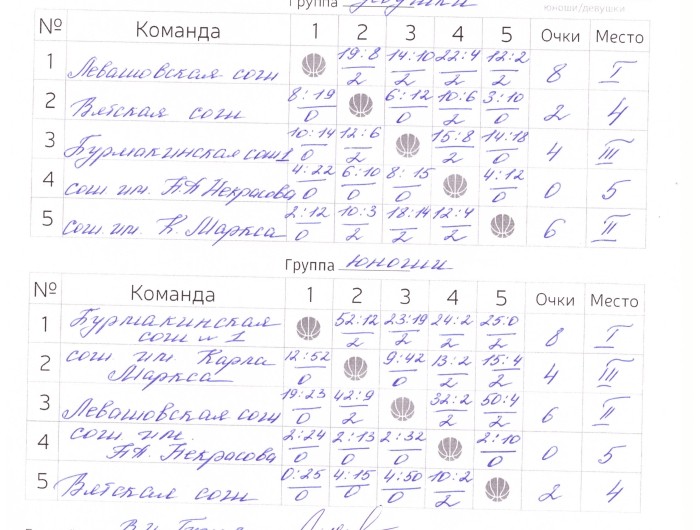 Группа девушки
юноши/девушки
№ Команда 1 2 3 4 5 Очки Место
1 Левашовская сош 19:8 14:10 22:4 12:2 8 I
2 2 2 2
2 Вятская сош 8:19 6:12 10:6 3:10 2 4
0 0 2 0
3 Бурмакинская сош 1 10:14 12:6 15:8 14:18 4 III
0 2 2 0
4 сош им. Н.А Некрасова 4:22 6:10 8:15 4:12 0 5
0 0 0 0
5 сош им. К. Маркса 2:12 10:3 18:14 12:4 6 II
0 2 2 2
Группа юноши
№ Команда 1 2 3 4 5 Очки Место
1 Бурмакинская 52:12 23:19 24:2 25:0 8 I
сош №1 2 2 2 2
2 сош им. Карла 12:52 9:42 13:2 15:4 4 III
Маркса 0 0 2 2
3 Левашовская сош 19:23 42:9 32:2 50:4 6 II
0 2 2 2
4 сош им. 2:24 2:13 2:32 2:10 0 5
Н.А. Некрасова 0 0 0 0
5 Вятская сош 0:25 4:15 4:50 10:2 2 4
0 0 0 2